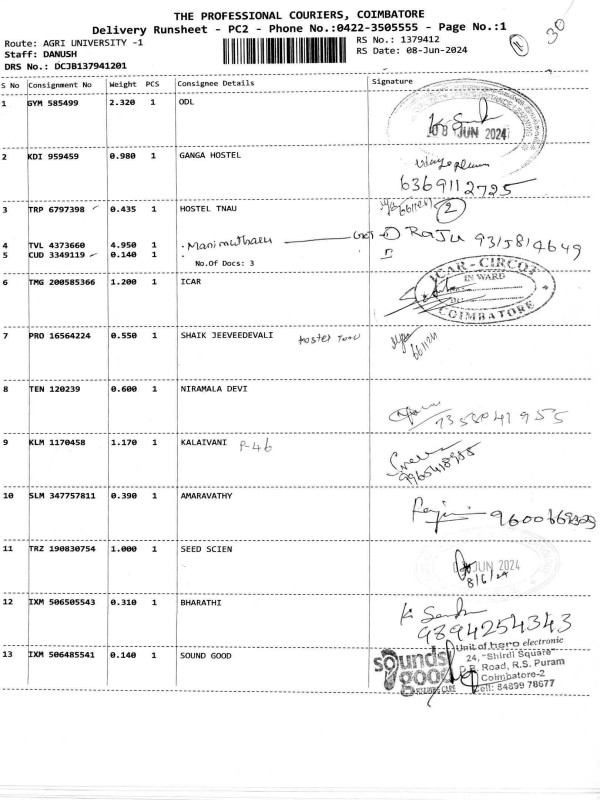 THE PROFESSIONAL COURIERS, COIMBATORE
Delivery Runsheet - PC2 - Phone No.:0422-3505555 - Page No.:1
30
Route: AGRI UNIVERSITY -1
RS No.: 1379412
Staff: DANUSH
RS Date: 08-Jun-2024
DRS No.: DCJB137941201
S No Consignment No Weight PCS Consignee Details Signature
1 GYM 585499 2.320 1 ODL
08 JUN 2024
2 KDI 959459 0.980 1 GANGA HOSTEL
6369112725
3 TRP 6797398 0.435 1 HOSTEL TNAU
2
4 TVL 4373660 4.950 1 Manimuthaeu RAJU 9315814649
5 CUD 3349119 0.140 1
No.Of Docs: 3
6 TMG 200585366 1.200 1 ICAR
ICAR - CIRCOT
INWARD
COIMBATORE
7 PRO 16564224 0.550 1 SHAIK JEEVEEDEVALI Hostel TNAU
661121
8 TEN 120239 0.600 1 NIRAMALA DEVI
7358041955
9 KLM 1170458 1.170 1 KALAIVANI P-46
9965418988
10 SLM 347757811 0.390 1 AMARAVATHY
11 TRZ 190830754 1.000 1 SEED SCIEN
JUN 2024
8/6/24
12 IXM 506505543 0.310 1 BHARATHI
9894254343
13 IXM 506485541 0.140 1 SOUND GOOD
sounds good
HEARING CARE
Unit of hero electronic
24, "Shirdi Square"
D.B. Road, R.S. Puram
Coimbatore-2
Cell: 84899 78677